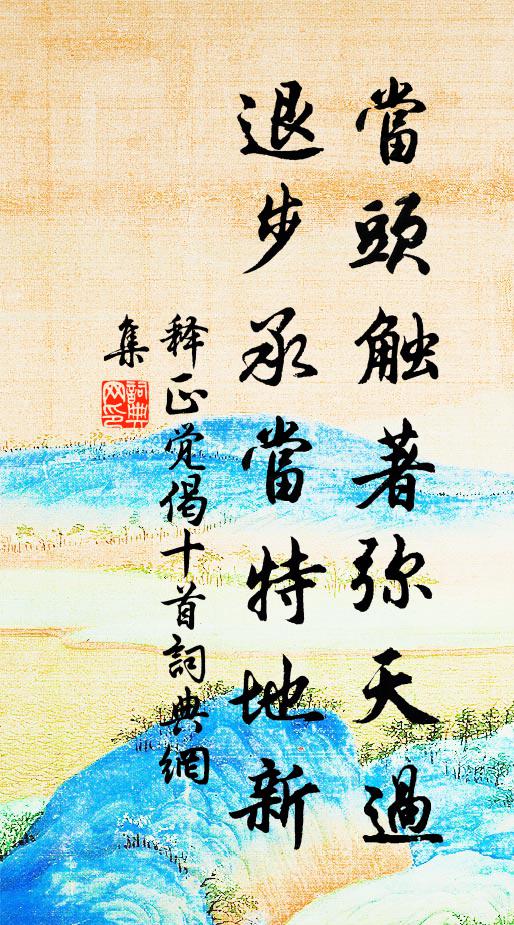 當頭触著弥天過
退步承當特地新
释正觉偈十首詞典網
集
詞典
网印